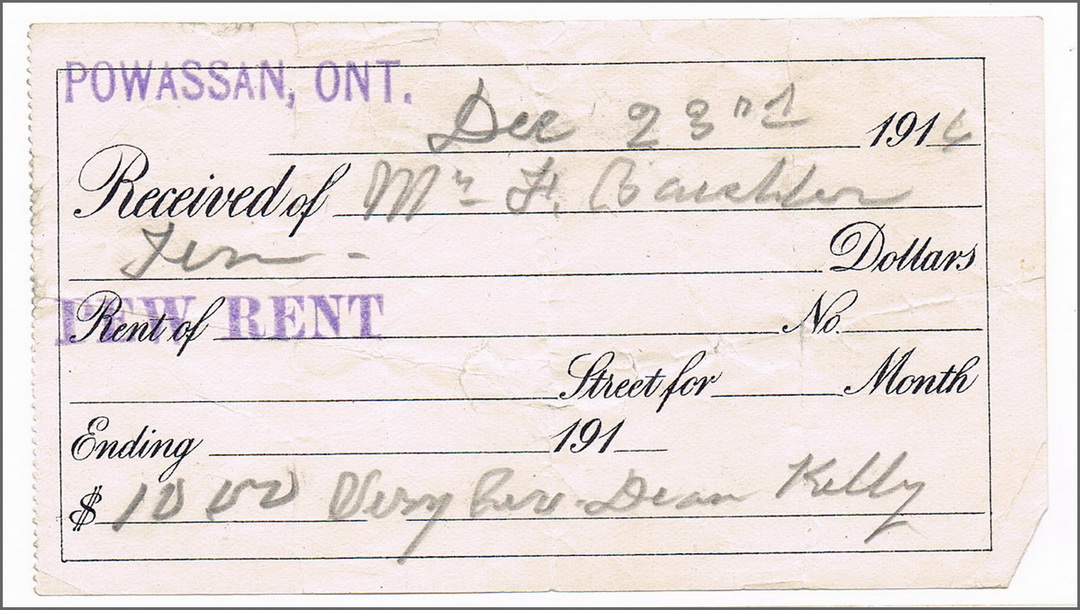 POWASSAN, ONT.
Dec 23rd 1916
Received of Mr F.
Ten - Dollars
PEW RENT
Rent of No.
Street for Month
Ending 191
$ 10 00 Very Rev. Dean Kelly